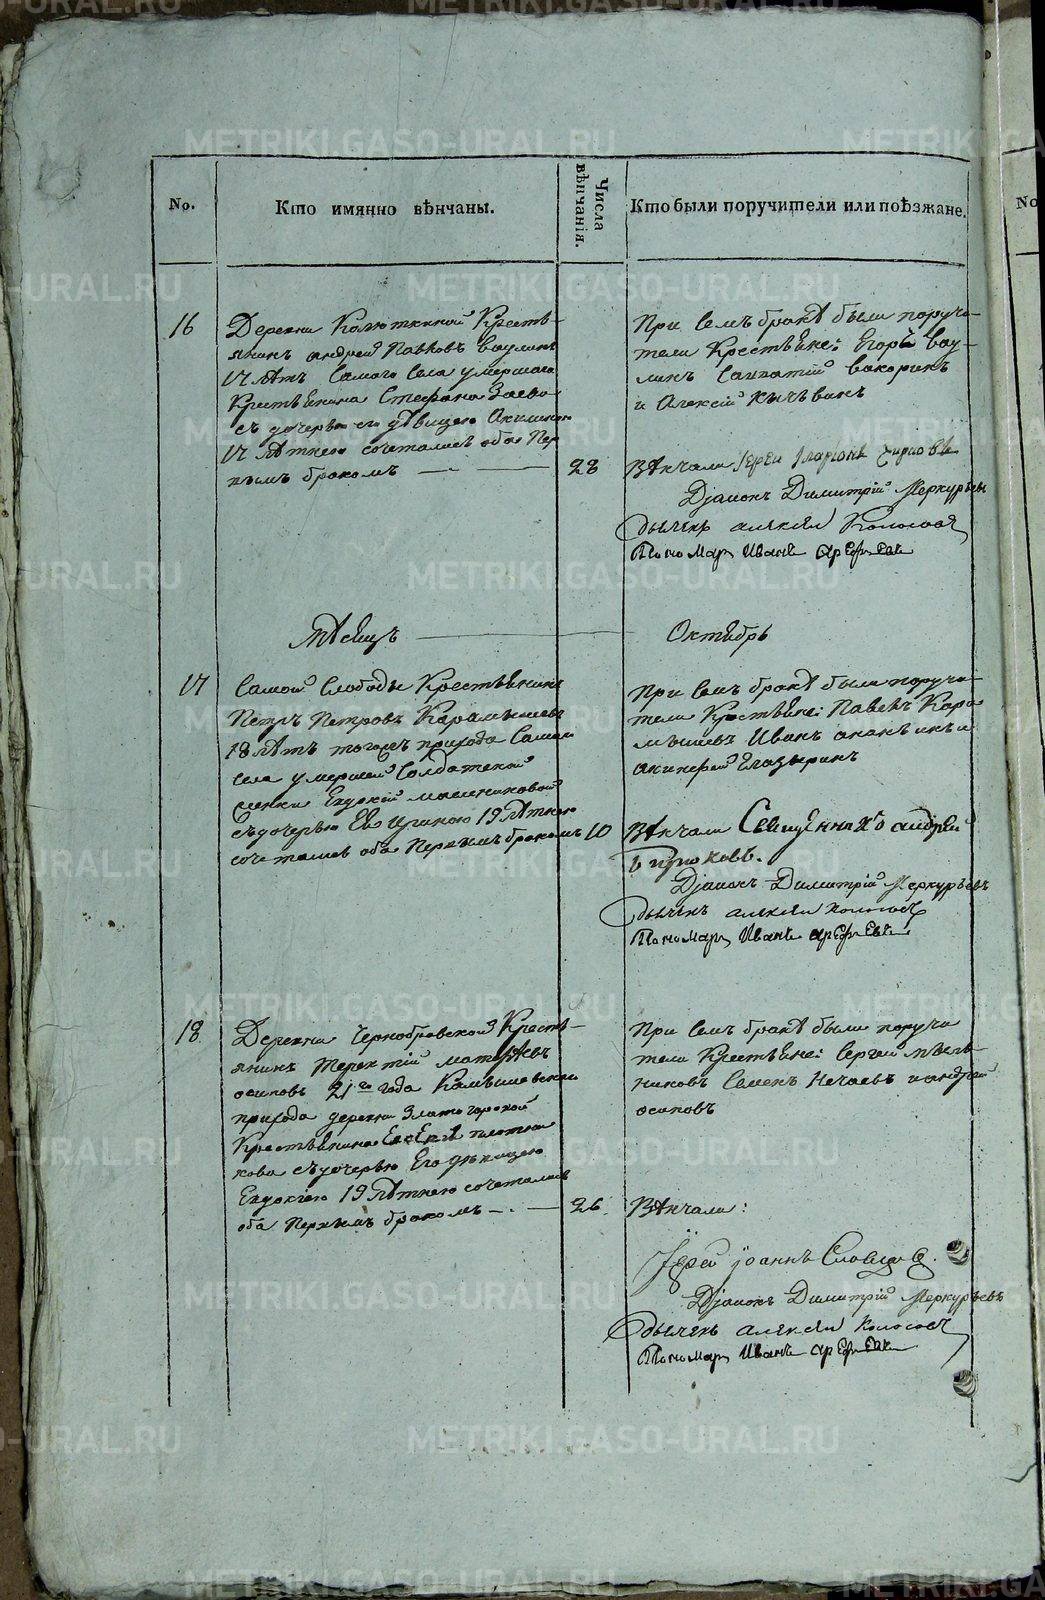 METRIKI.GASO-URAL.RU
No.
Кто имянно вѣнчаны.
Числа вѣнчанія.
Кто были поручители или поѣзжане.
16
Деревни Калюткиной Кресть-
янинъ андрей Павловъ Ваулинъ
17 лѣтъ Самаго Села умершаго
Крестьянина Стефана
съ дочерью его дѣвицею Акилиною
17 лѣтнею сочетались оба Пер
вымъ бракомъ
28
При семъ бракѣ были поручи-
тели Крестьяне: Егоръ Вау-
линъ вакоринъ
и Алексій
Вѣнчали Іерей Иларіонъ
Діаконъ Димитрій Меркурьевъ
дьячекъ алексѣй Колосовъ
Пономарь Иванъ арефьевъ
Мѣсяцъ Октябрь
17
Самой Слободы Крестьянинъ
Петръ Петровъ Карамышевъ
18 лѣтъ тогожъ прихода Самаго
села умершей Солдатской
женки Евдокіи мясниковой
съ дочерью Ея Ириною 19 лѣтнею
сочетались оба Первымъ бракомъ
10
При семъ бракѣ были поручи-
тели Крестьяне: Павелъ Кара
мышевъ Иванъ ананьинъ и
акинфей
Вѣнчали Священникъ андрей
Бирюковъ.
Діаконъ Димитрій Меркурьевъ
дьячекъ алексѣй колосовъ
Пономарь Иванъ арефьевъ
18
Деревни Чернобровской Кресть-
янинъ Терентій матвѣевъ
осиповъ 21го года Камышевскаго
прихода деревни Златогорской
Крестьянина Евсевія плотни
кова съ дочерью Его дѣвицею
Евдокіею 19 лѣтнею сочетались
оба Первымъ бракомъ
26.
При семъ бракѣ были поручи
тели Крестьяне: Сергей мѣль-
никовъ Семенъ Нечаевъ и андрей
осиповъ
Вѣнчали:
Іерей Іоаннъ Словцовъ.
Діаконъ Димитрій Меркурьевъ
дьячекъ алексѣй колосовъ
Пономарь Иванъ арефьевъ